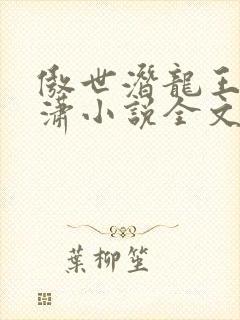 傲世潛龍王
潇小說全文
葉柳笙